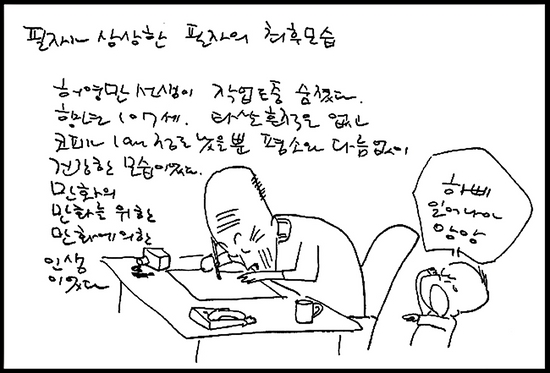 필자가 상상한 필자의 최후모습
허영만 선생이 작업도중 숨졌다.
향년 107세. 타살흔적은 없고
코피가 1cm 정도 났을뿐 평소와 다름없이
건강한 모습이었다.
만화의
만화를 위한
만화에 의한
인생
이었다
하삐
일어나아
앙앙